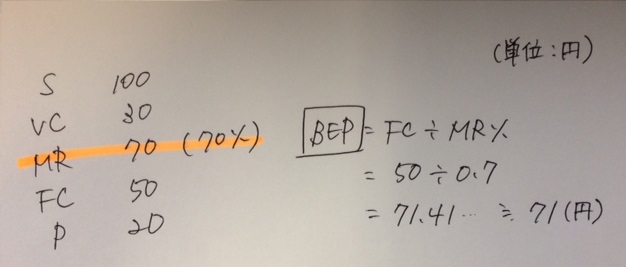 (単位:円)
S 100
VC 30
MR 70 (70%)
FC 50
P 20
BEP = FC ÷ MR%
= 50 ÷ 0.7
= 71.41… ≒ 71(円)